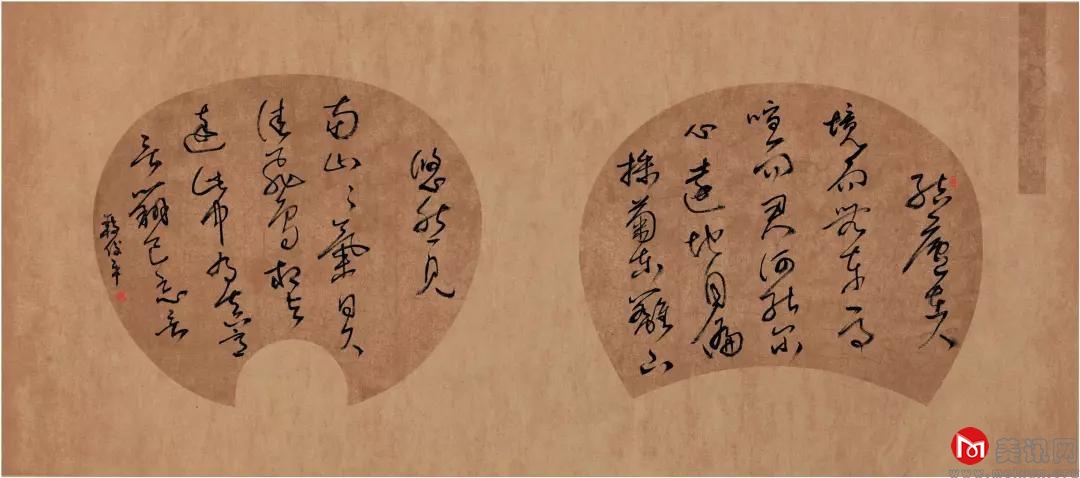 結廬在人
境而無車馬
喧問君何能尔
心遠地自偏
採菊東籬下
悠然見
南山々氣日夕
佳飛鳥相與
還此中有真意
欲辯已忘言
俊平
美讯网